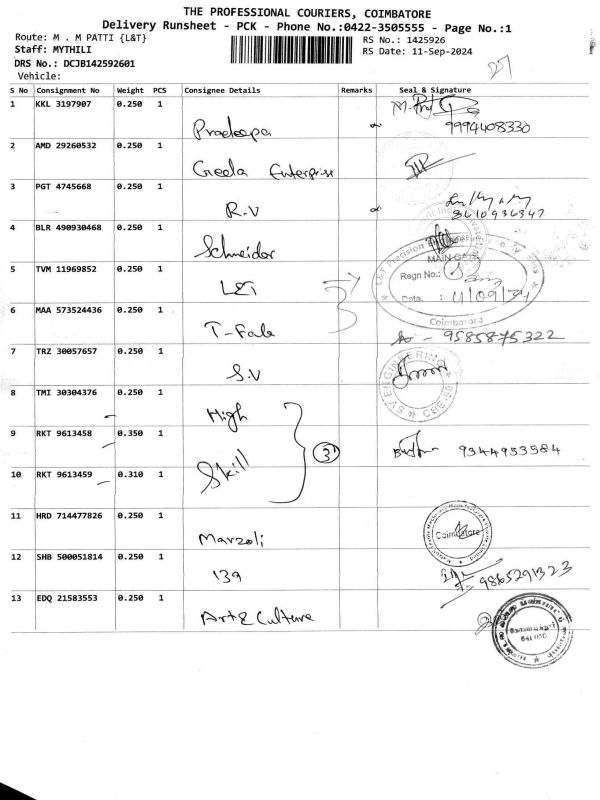 THE PROFESSIONAL COURIERS, COIMBATORE
Delivery Runsheet - PCK - Phone No.:0422-3505555 - Page No.:1
Route: M . M PATTI {L&T}
RS No.: 1425926
Staff: MYTHILI
RS Date: 11-Sep-2024
DRS No.: DCJB142592601
Vehicle:
27
S No Consignment No Weight PCS Consignee Details Remarks Seal & Signature
1 KKL 3197907 0.250 1 Pradeepa 9994408330
2 AMD 29260532 0.250 1 Geeta Enterprise
3 PGT 4745668 0.250 1 R.V 8610936347
4 BLR 490930468 0.250 1 Schneider
L&T Precision
MAIN GATE
5 TVM 11969852 0.250 1 L&T
Regn No.:
Date. : 11/09/24
Coimbatore
6 MAA 573524436 0.250 1 T-Fab 9585875322
7 TRZ 30057657 0.250 1 S.V
SV ENGINEERING
8 TMI 30304376 0.250 1 High
9 RKT 9613458 0.350 1 Skill 3 9344953584
10 RKT 9613459 0.310 1
11 HRD 714477826 0.250 1 Marzoli
Coimbatore
12 SHB 500051814 0.250 1 139 9865291323
13 EDQ 21583553 0.250 1 Art & Culture
641 050